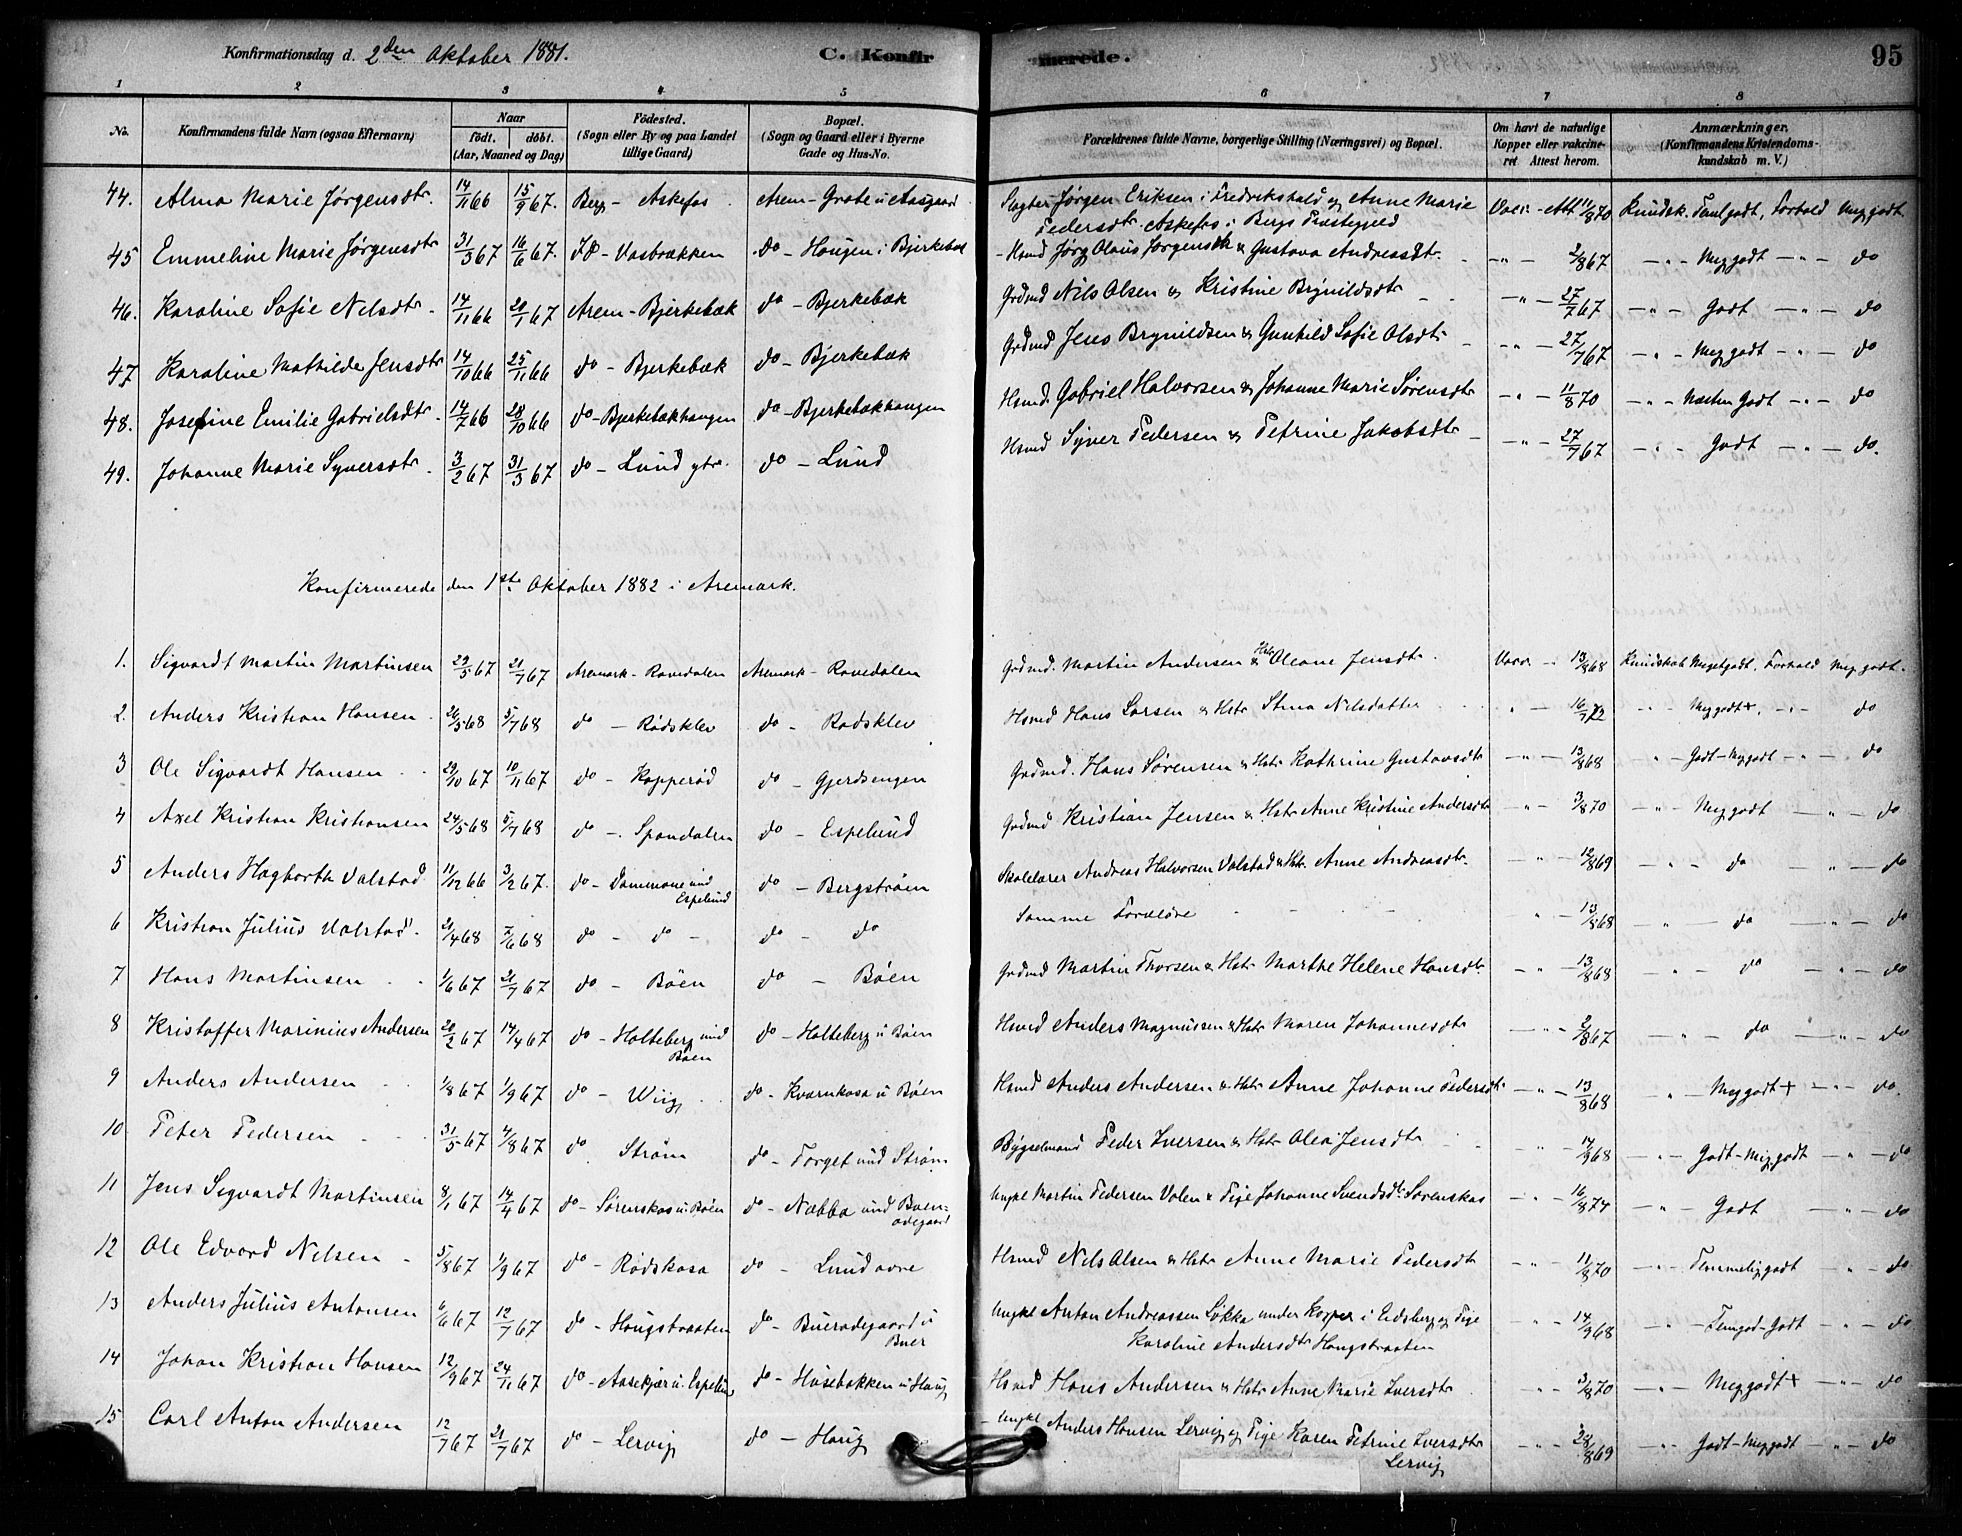 Konfirmationsdag d. 2den Oktober 1881. C. Konfirmerede. 95
1 2 3 4 5 6 7 8
No. Konfirmandens fulde Navn (ogsaa Efternavn) Naar födt. döbt. (Aar, Maaned og Dag) Födested. (Sogn eller By og paa Landet tillige Gaard) Bopæl. (Sogn og Gaard eller i Byerne Gade og Hus-No. Forældrenes fulde Navne, borgerlige Stilling (Næringsvei) og Bopæl. Om havt de naturlige Kopper eller vakcineret. Attest herom. Anmærkninger. (Konfirmandens Kristendomskundskab m. V.)
44. Alma Marie Jørgensdtr. 14/11 66 15/9 67. Berg - Askefos Arem - Grate u Aasgaard Jørgen Eriksen i Fredrikshald og Anne Marie Pedersdtr Askefos i Bergs Præstegjeld Vacc. - Att 11/8 70 Kundsk. Taalgodt, Forhold Meg godt
45 Emmeline Marie Jørgensdtr 31/3 67 16/6 67. Vasbrækken do - Haugen i Bjerkebæk Hsmd Jørg Olaus Jørgensen & Gustava Andreasdtr. - " - 2/8 67 - " - Meg godt - " - do
46. Karoline Sofie Nilsdtr. 14/11 66 20/1 67 Arem - Bjerkebæk do - Bjerkebæk Grdmd Nils Olsen & Kristine Brynildsdtr - " - 27/7 67 - " - Godt - " - do
47 Karoline Mathilde Jensdtr 14/10 66 25/11 66 do - Bjerkebæk do - Bjerkebæk Grdmd Jens Brynildsen & Gunhild Sofie Olsdtr - " - 27/7 67 - " - Meg godt - " - do
48. Josefine Emilie Gabrielsdtr. 14/7 66 28/10 66 do - Bjerkebækhaugen do - Bjerkebækhaugen Hsmd. Gabriel Halvorsen & Johanne Marie Sørensdtr - " - 11/8 70 - " - Næsten Godt - " - do
49. Johanne Marie Syversdtr. 3/2 67 31/3 67 do - Lund ytr. do - Lund Hsmd Syver Pedersen & Petrine Jakobsdtr - " - 27/7 67 - " - Godt - " - do.
Konfirmerede den 1ste Oktober 1882 i Aremark.
1. Sigvardt Martin Martinsen 29/5 67 21/7 67 Aremark - Ravedalen Aremark - Ravedalen Grdmd. Martin Andersen & Hstr Oleane Jensdtr. Vacc. - 13/8 68 Kundskab Megetgodt, Forhold Meg godt.
2. Anders Kristian Hansen 5/7 68 do - Rødsklev do - Rødsklev Hsmd Hans Larsen & Hstr Stina Nilsdatter " - 16/7 72 - " - Meg godt +, - " - do
3 Ole Sigvardt Hansen 29/10 67 10/11 67 do - Kopperød do - Gjerdsengen Grdmd. Hans Sørensen & Hstr. Kathrine Gustavsdtr - " - 13/8 68 - " - Godt - Meg godt - " - do
4 Axel Kristian Kristiansen 24/5 68 5/7 68 do - Spondalen do - Espelund Grdmd Kristian Jensen & Hstr Anne Kristine Andersdtr - " - 3/8 70 - " - Meg godt - " - do
5 Anders Hagbarth Valstad 11/12 66 3/2 67. do - Dammane und Espelund do - Bergstrøm Skolelærer Andreas Halvorsen Valstad & Hstr. Anne Andreasdtr. - " - 12/8 69 - " - do - " - do
6 Kristian Julius Valstad 7/6 68 do - do - do - do Samme Forældre " - 13/8 68 - " - do - " - do
7 Hans Martinsen 1/6 67 21/7 67 do - Böen do - Böen Grdmd Martin Thorsen & Hstr Marthe Helene Hansdtr - " - 13/8 68 - " - do - " - do
8 Kristoffer Marinius Andersen 20/2 67 14/4 67 do - Holteberg und Böen do - Holteberg u Böen Hsmd Anders Magnussen & Hstr Maren Johannesdtr - " - 2/8 67 - " - do - " - do
9 Anders Andersen 1/8 67 1/9 67 do - Wiig do - Kvarnkasa u Böen Hsmd Anders Andersen & Hstr Anne Johanne Pedersdtr - " - 13/8 68 - " - Meg godt + - " - do.
10 Peter Pedersen 31/5 67 4/8 67 do Strøm do - Torget und Strøm Bygselmand Peder Iversen & Hstr Olea Jensdtr " - 14/9 68 - " - Godt - Meg godt - " - do
11 Jens Sigvardt Martinsen 8/1 67 14/4 67 do - Sørenskas u. Böen do - Nabba und Böenødegaard Ungkl Martin Pedersen Volen & Pige Johanne Svendsdtr Sørenskas - " - 16/8 74 - " - Godt - " - do
12 Ole Edvard Nilsen 5/8 67 1/9 67 do - Rødskasa do - Lund øvre Hsmd Nils Olsen & Hstr Anne Marie Pedersdtr - " - 11/8 70 - " - Temmelig godt - " - do
13 Anders Julius Antonsen 6/6 67 12/7 67 do - Haugstraaten do - Buerødegaard u Buer Ungkl Anton Andreassen Løkka under Kopper i Eidsberg og Pige Karoline Andersdtr Haugstraaten - " - 14/9 68 - " - Temgod - Godt - " - do
14 Johan Kristian Hansen 12/9 67 24/11 67 do - Aasekjær u. Espelund do - Husebakken u Haug Hsmd Hans Andersen & Hstr Anne Marie Iversdtr - " - 3/8 70 - " - Meg godt + - " - do
15 Carl Anton Andersen 12/7 67 21/7 67 do - Lervig do - Haug Ungkl Anders Hansen Lervig og Pige Karen Petrine Iversdtr Lervig - " - 28/8 69 - " - Godt - Meg godt - " - do